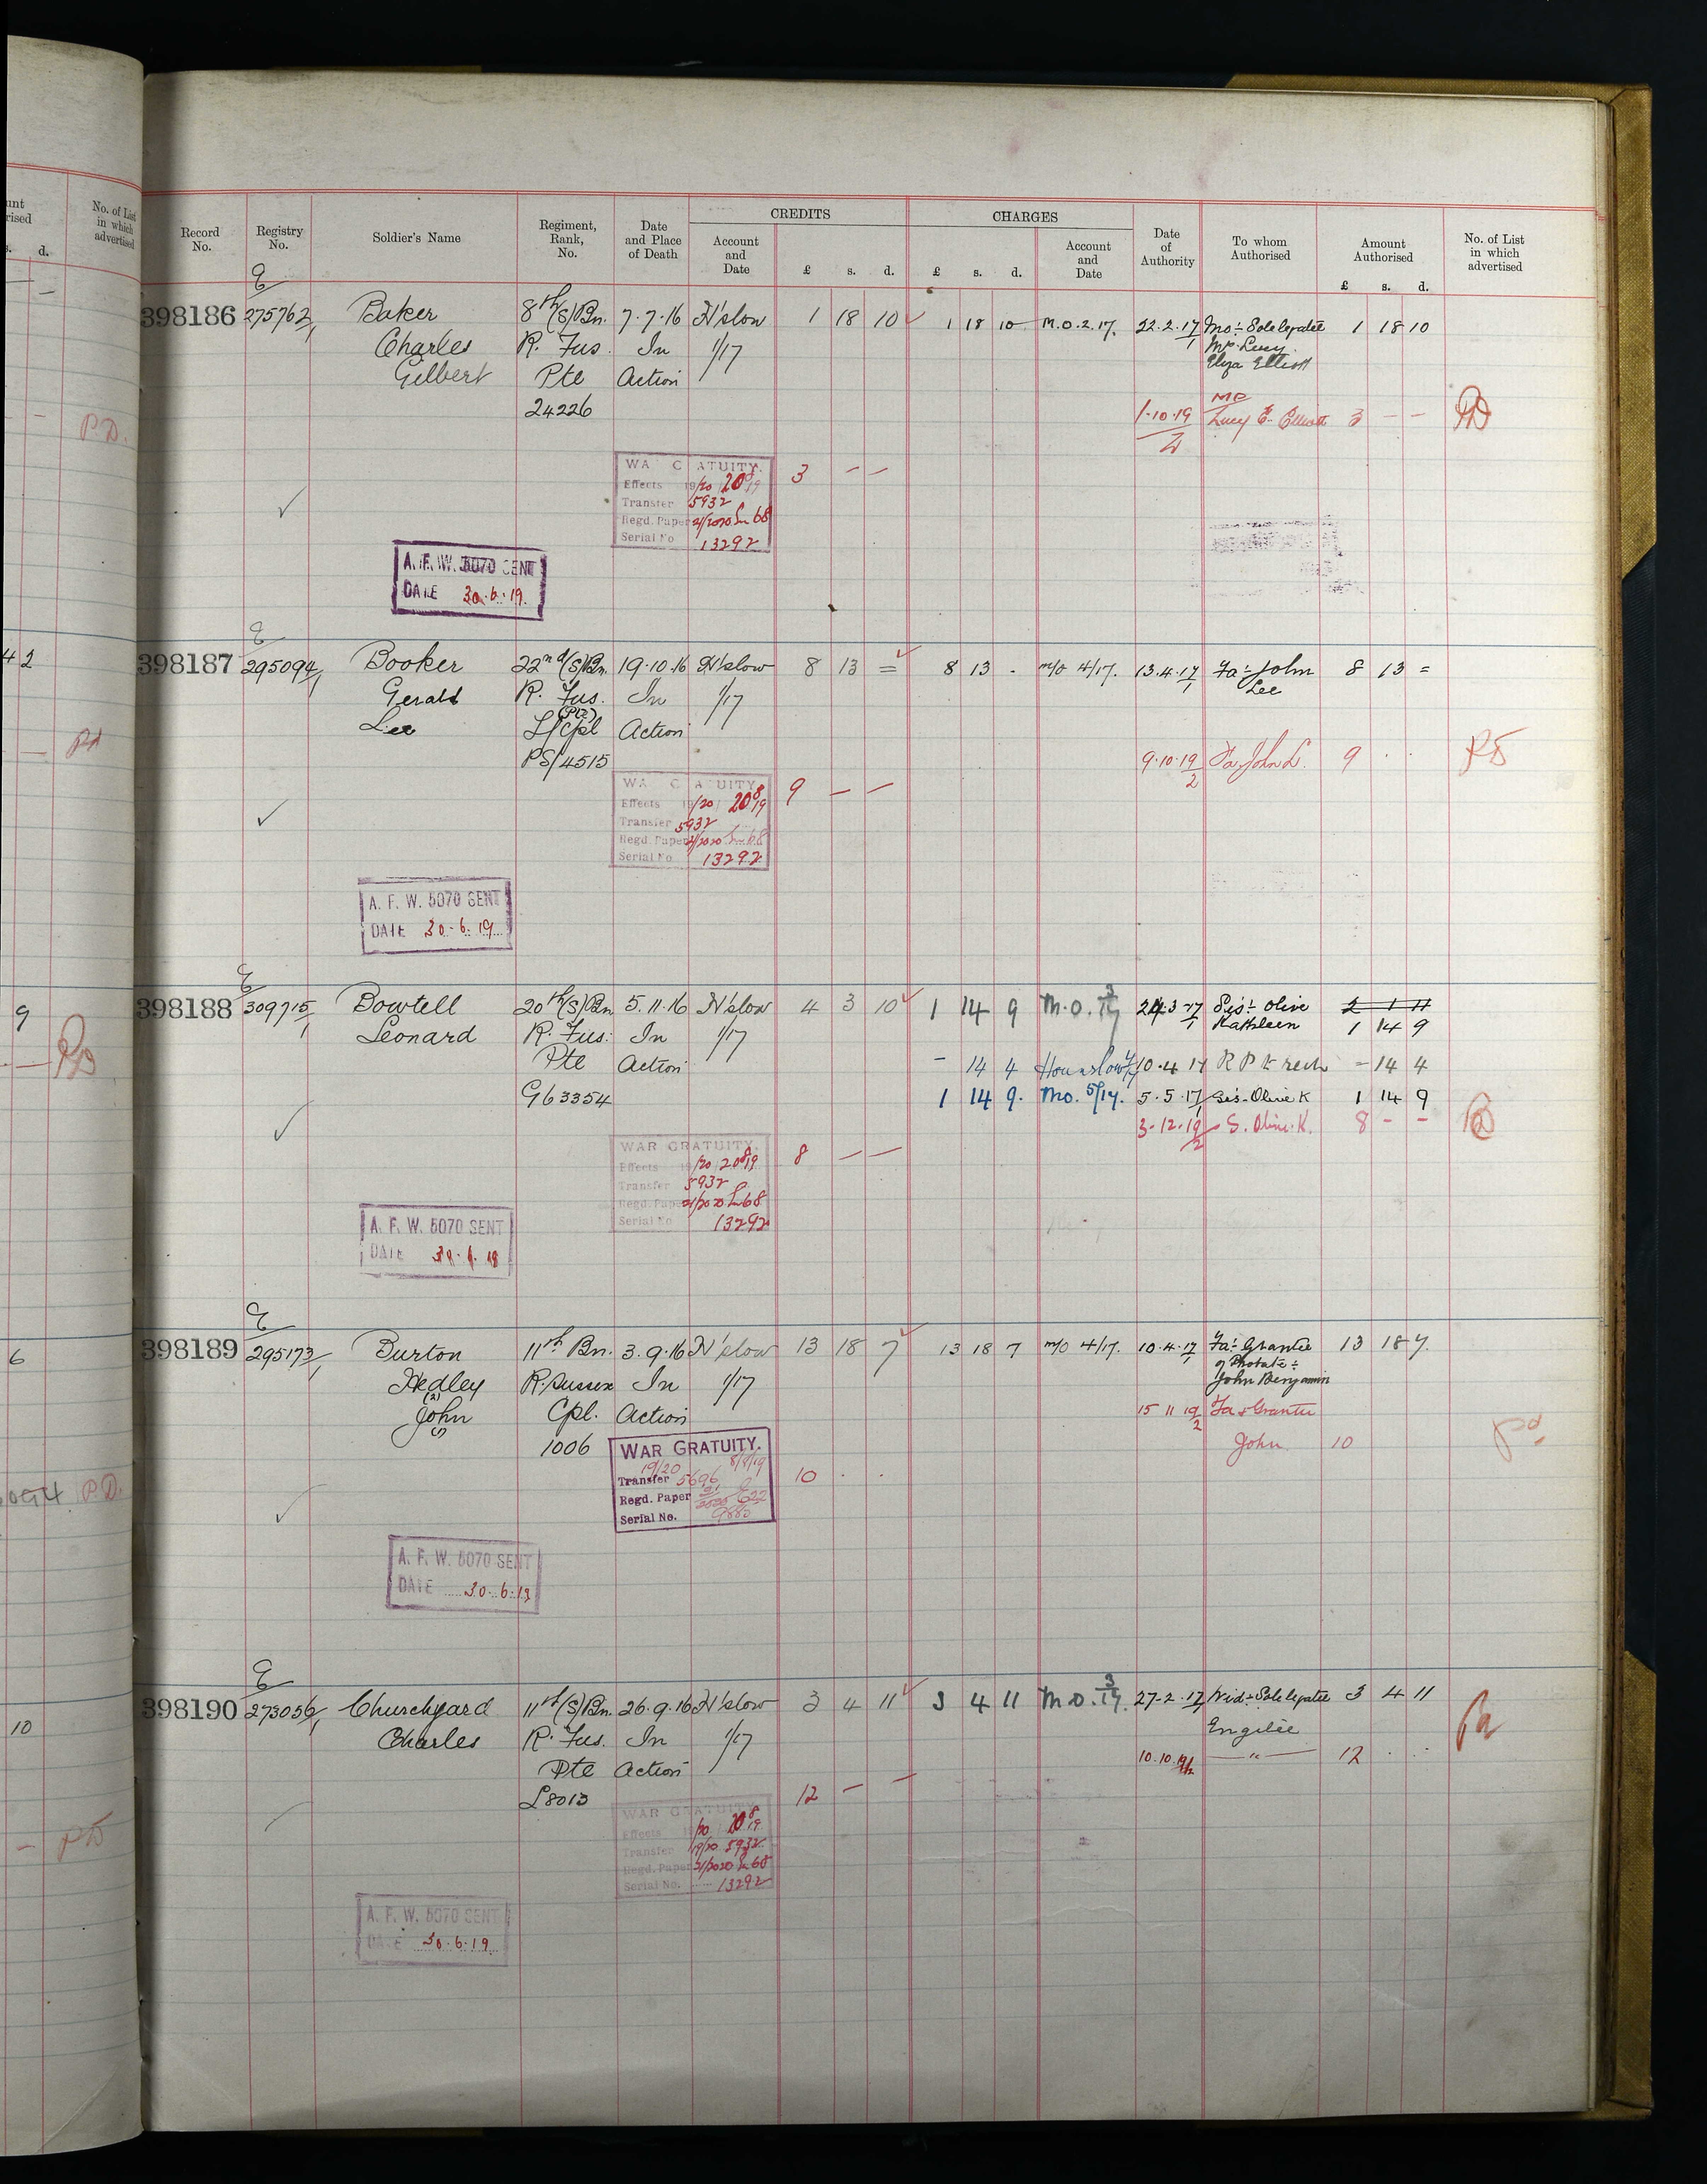 No. of List
in which
advertised
s. d.
42
9
6
10
P.D.
CREDITS
CHARGES
Record No.
Registry No.
Soldier's Name
Regiment, Rank, No.
Date and Place of Death
Account and Date
£ s. d.
£ s. d.
Account and Date
Date of Authority
To whom Authorised
Amount Authorised
£ s. d.
No. of List in which advertised
398186 275762/1 Baker 8th (S) Bn. 7.7.16 H'slow 1 18 10 1 18 10 M.O.2.17. 22.2.17/1 Mo:- Sole legatee 1 18 10
Charles R. Fus. In 1/17 Mrs Lucy
Gilbert Pte Action Eliza Elliott
24226
1.10.19/2 Mo Lucy E. Elliott 3 - - PD
WA C ATUITY. 3 - -
Effects 19/20 20 8/19
Transfer 5932
Regd. Paper 21/2020 68
Serial No 13292
A. F. W. 5070 SENT
DATE 30.6.19.
398187 295094/1 Booker 22nd (S) Bn. 19.10.16 H'slow 8 13 = 8 13 - m/o 4/17. 13.4.17/1 Fa:- John 8 13 =
Gerald R. Fus. In 1/17 Lee
Lee (Pte) L/Cpl Action
PS/4515
9.10.19/2 Fa. John L. 9 . . PD
WA C ATUITY 9 - -
Effects /20 20 8/19
Transfer 5932
Regd. Paper 21/2020 68
Serial No 13292
A. F. W. 5070 SENT
DATE 30.6.19
398188 309715/1 Bowtell 20th (S) Bn 5.11.16 H'slow 4 3 10 1 14 9 M.O. 3/17 24.3.17/1 Sis:- Olive 2 1 11
Leonard R. Fus: In 1/17 Kathleen 1 14 9
Pte Action - 14 4 Hounslow 4/17 10.4.17 R P & rech - 14 4
G63354 1 14 9. Mo. 5/17. 5.5.17/1 Sis- Olive K 1 14 9
3-12-19/2 S. Olive. K. 8 - - PD
WAR GRATUITY. 8 - -
Effects /20 20 8/19
Transfer 5932
Regd. Paper 21/2020 68
Serial No 13292
A. F. W. 5070 SENT
DATE
398189 295173/1 Burton 11th Bn. 3.9.16 H'slow 13 18 7 13 18 7 m/o 4/17. 10.4.17/1 Fa:- Grantee 13 18 7.
Hedley (2) R. Sussex In 1/17 of Probate:-
John (1) Cpl. Action John Benjamin
1006 15 11 19/2 Fa & Grantee
John 10 pd.
WAR GRATUITY. 10 . .
19/20 8/8/19
Transfer 5696
Regd. Paper
Serial No.
A. F. W. 5070 SENT
DATE 30.6.19
398190 273056/1 Churchyard 11th (S) Bn. 26.9.16 H'slow 3 4 11 3 4 11 M.O. 3/17. 27-2.17/1 Wid:- Sole legatee 3 4 11
Charles R. Fus. In 1/17
Pte Action 10.10.19/2 — " — 12 . .
L8013 12 - -
WAR GRATUITY
Effects /20 20 8/19
Transfer 19/20 5932
Regd. Paper 21/2020 68
Serial No. 13292
A. F. W. 5070 SENT
DATE 30.6.19